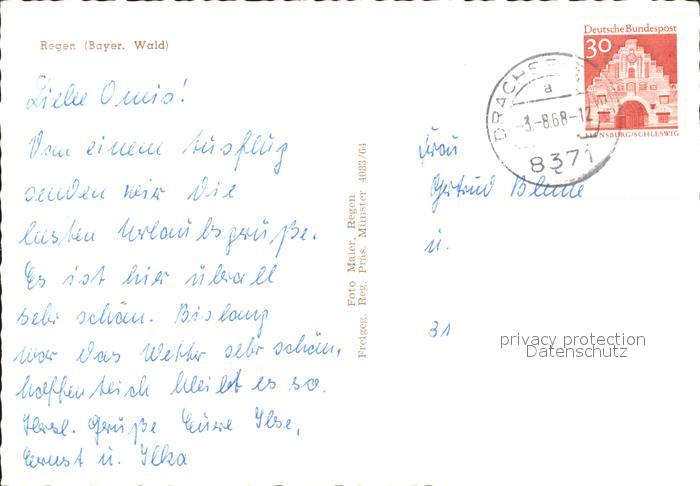 Regen (Bayer. Wald)
Liebe Omis!
Von einem Ausflug
senden wir die
besten Urlaubsgrüße.
Es ist hier überall
sehr schön. Bislang
war das Wetter sehr schön,
hoffentlich bleibt es so.
Herzl. Grüße Eure Ilse,
Ernst u. Ilka
Foto Maier, Regen
Freigeg. Reg. Präs. Münster 4083/64
Deutsche Bundespost
30
FLENSBURG/SCHLESWIG
a
-3.-8.68-12
8371
Frau
Gertrud Blume
u.
31
privacy protection
Datenschutz